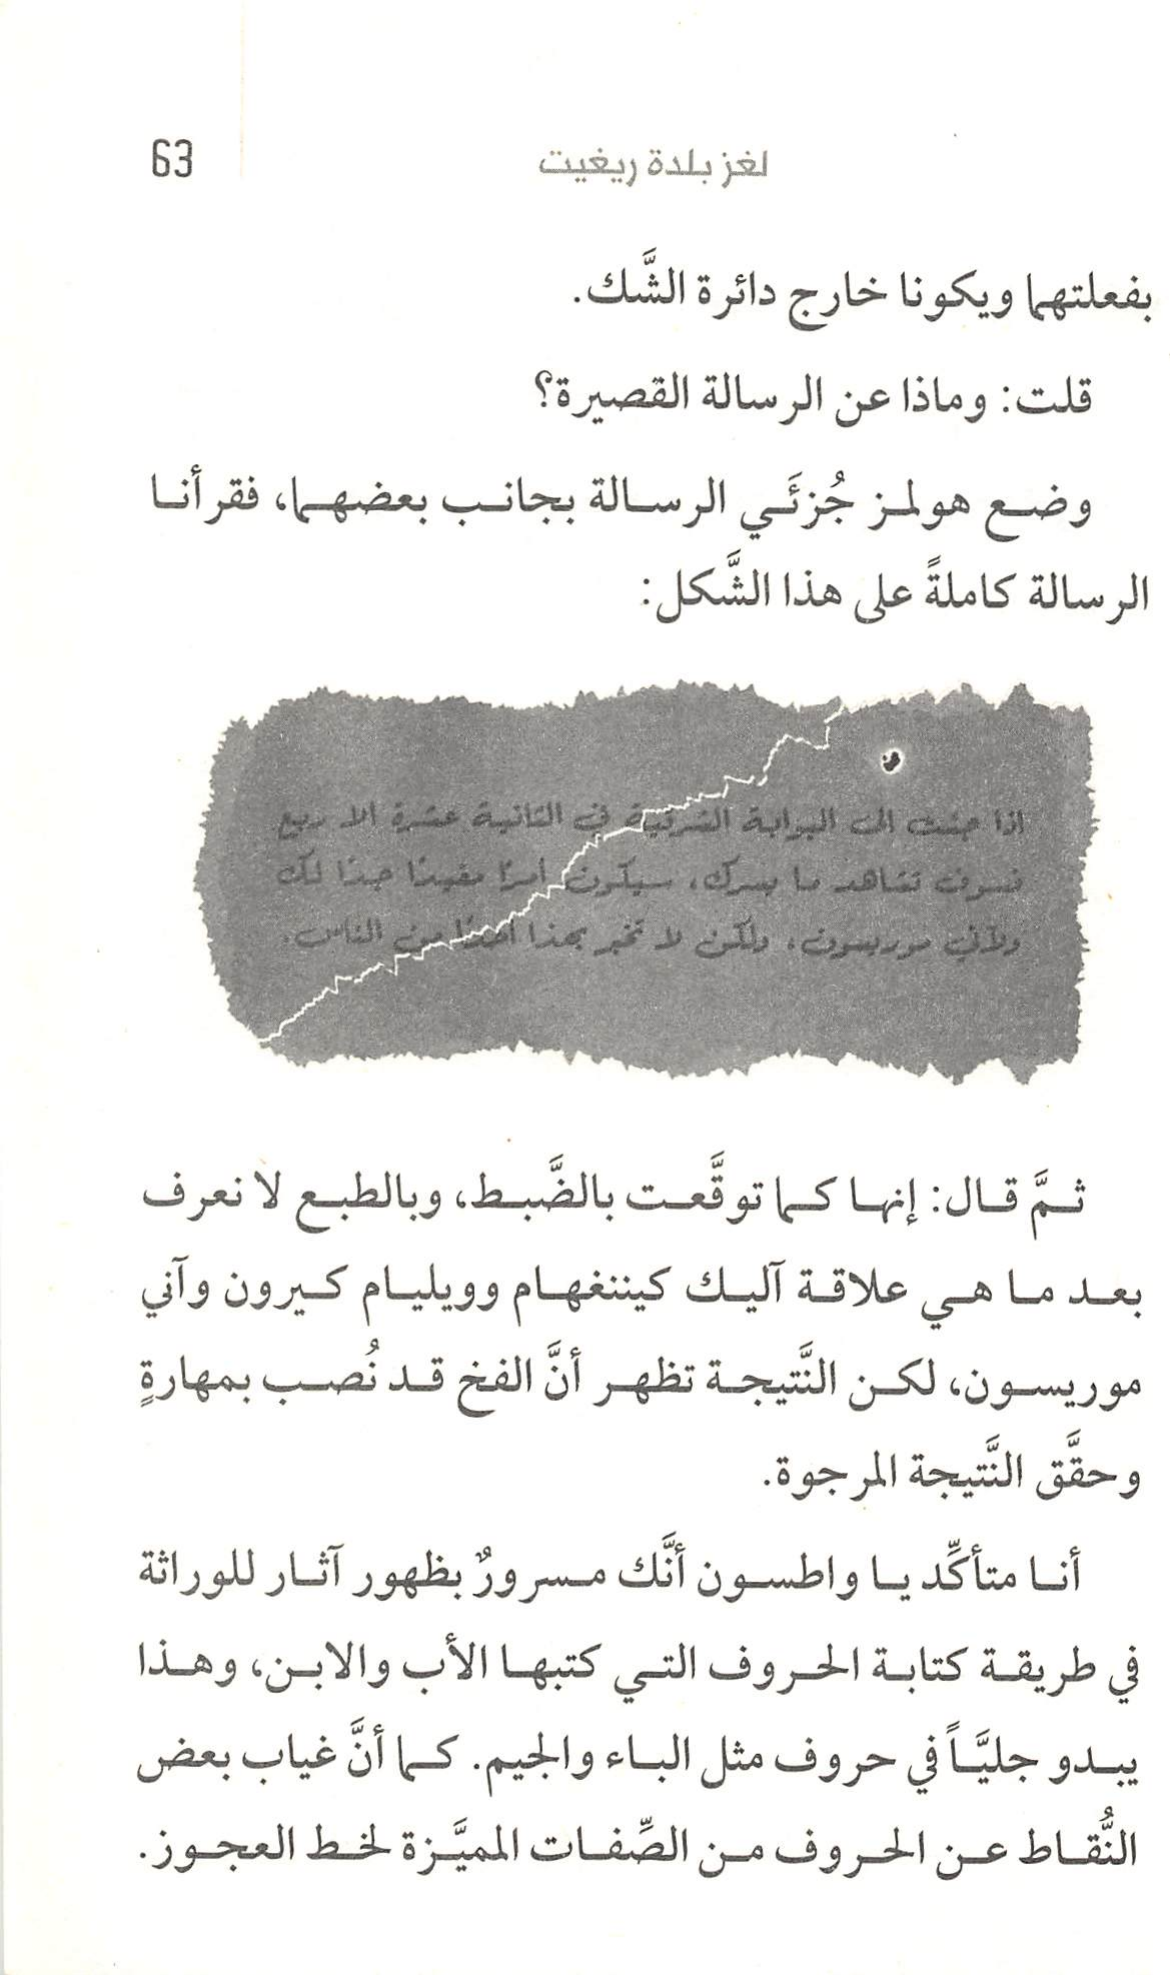 لغز بلدة ريغيت
63
بفعلتهما ويكونا خارج دائرة الشَّك.
قلت: وماذا عن الرسالة القصيرة؟
وضع هولمز جُزئَي الرسالة بجانب بعضهما، فقرأنا
الرسالة كاملةً على هذا الشَّكل:
اذا جئت الى البوابة الشرقية في الثانية عشرة الا ربع
فسوف تشاهد ما يسرك، سيكون أمرًا مفيدًا جدًا لك
ولآني موريسون، ولكن لا تخبر بهذا أحدًا من الناس.
ثمَّ قال: إنها كما توقَّعت بالضَّبط، وبالطبع لا نعرف
بعد ما هي علاقة آليك كيننغهام وويليام كيرون وآني
موريسون، لكن النَّتيجة تظهر أنَّ الفخ قد نُصب بمهارةٍ
وحقَّق النَّتيجة المرجوة.
أنا متأكِّد يا واطسون أنَّك مسرورٌ بظهور آثار للوراثة
في طريقة كتابة الحروف التي كتبها الأب والابن، وهذا
يبدو جليَّاً في حروف مثل الباء والجيم. كما أنَّ غياب بعض
النُّقاط عن الحروف من الصِّفات المميَّزة لخط العجوز.